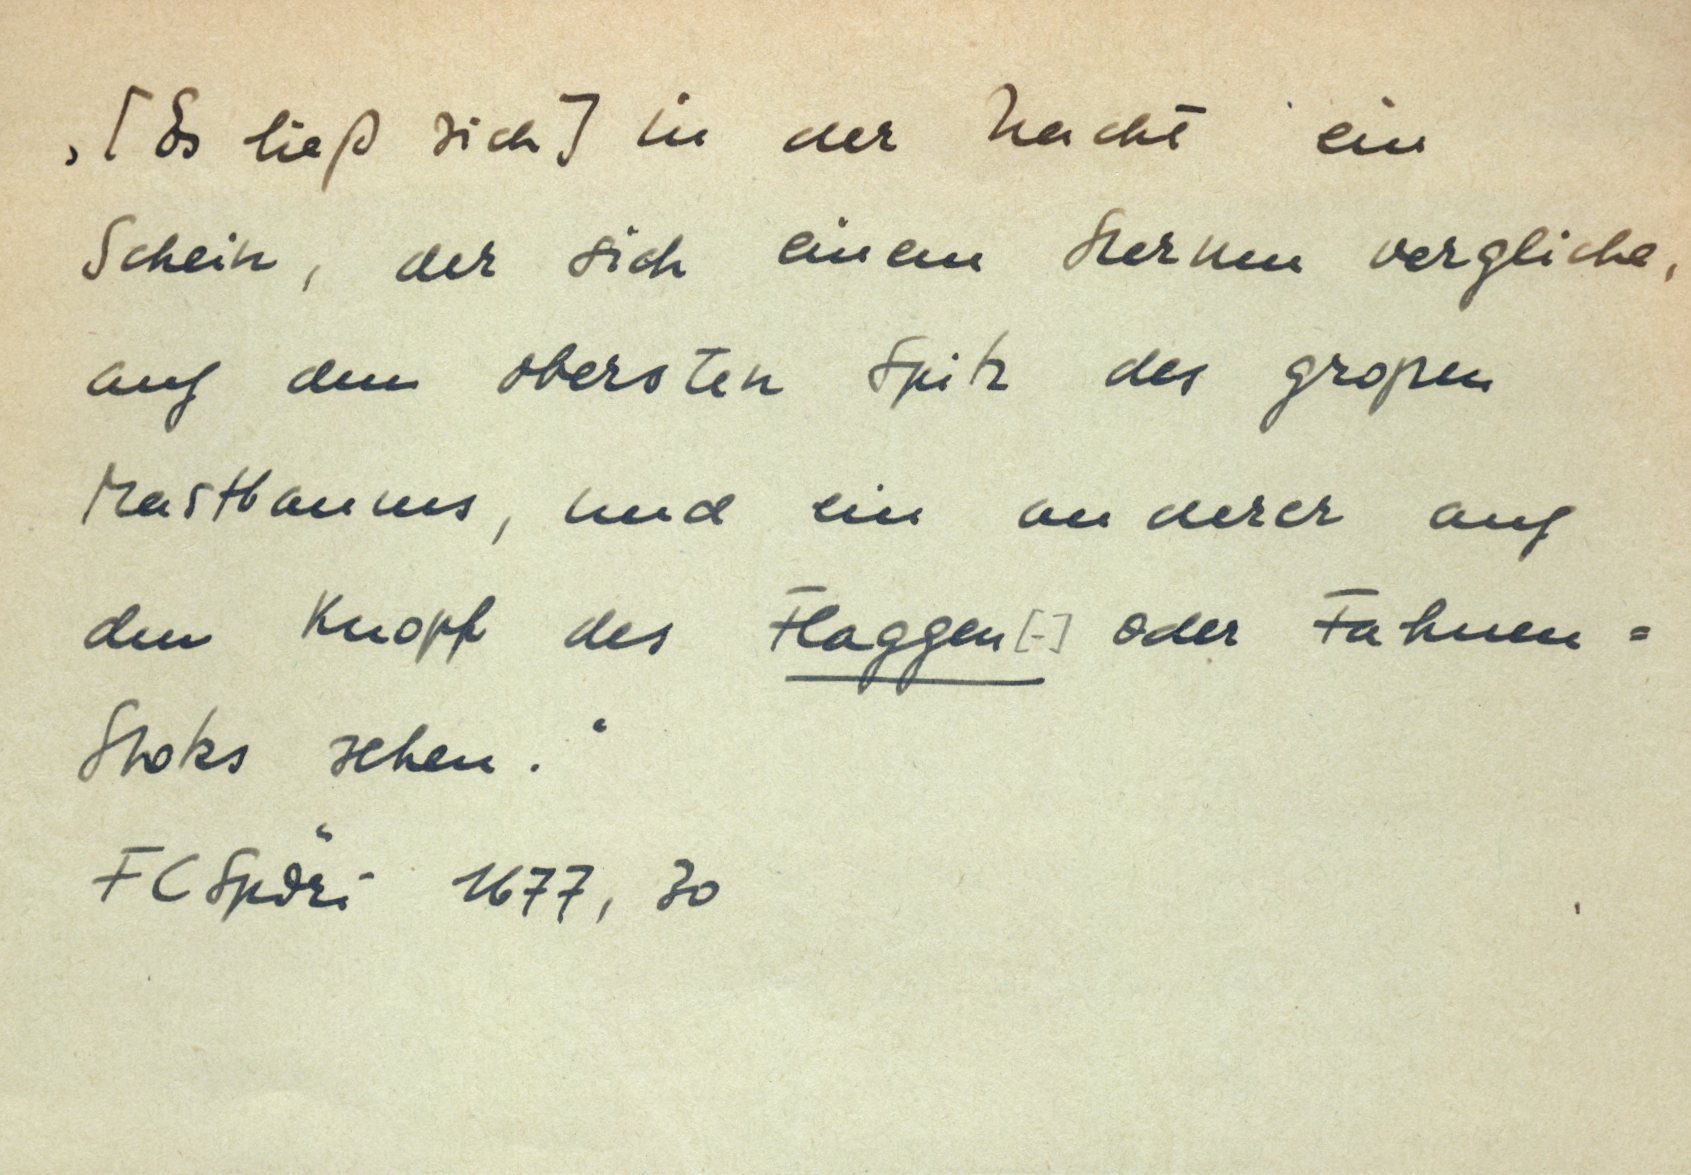 ‚[Es ließ sich] in der Nacht ein
Schein, der sich einem Sternen vergliche,
auf dem obersten Spitz des großen
Mastbaums, und ein anderer auf
dem Knopf des Flaggen[-] oder Fahnen=
Stoks sehen.‘
FCSpöri 1677, 30